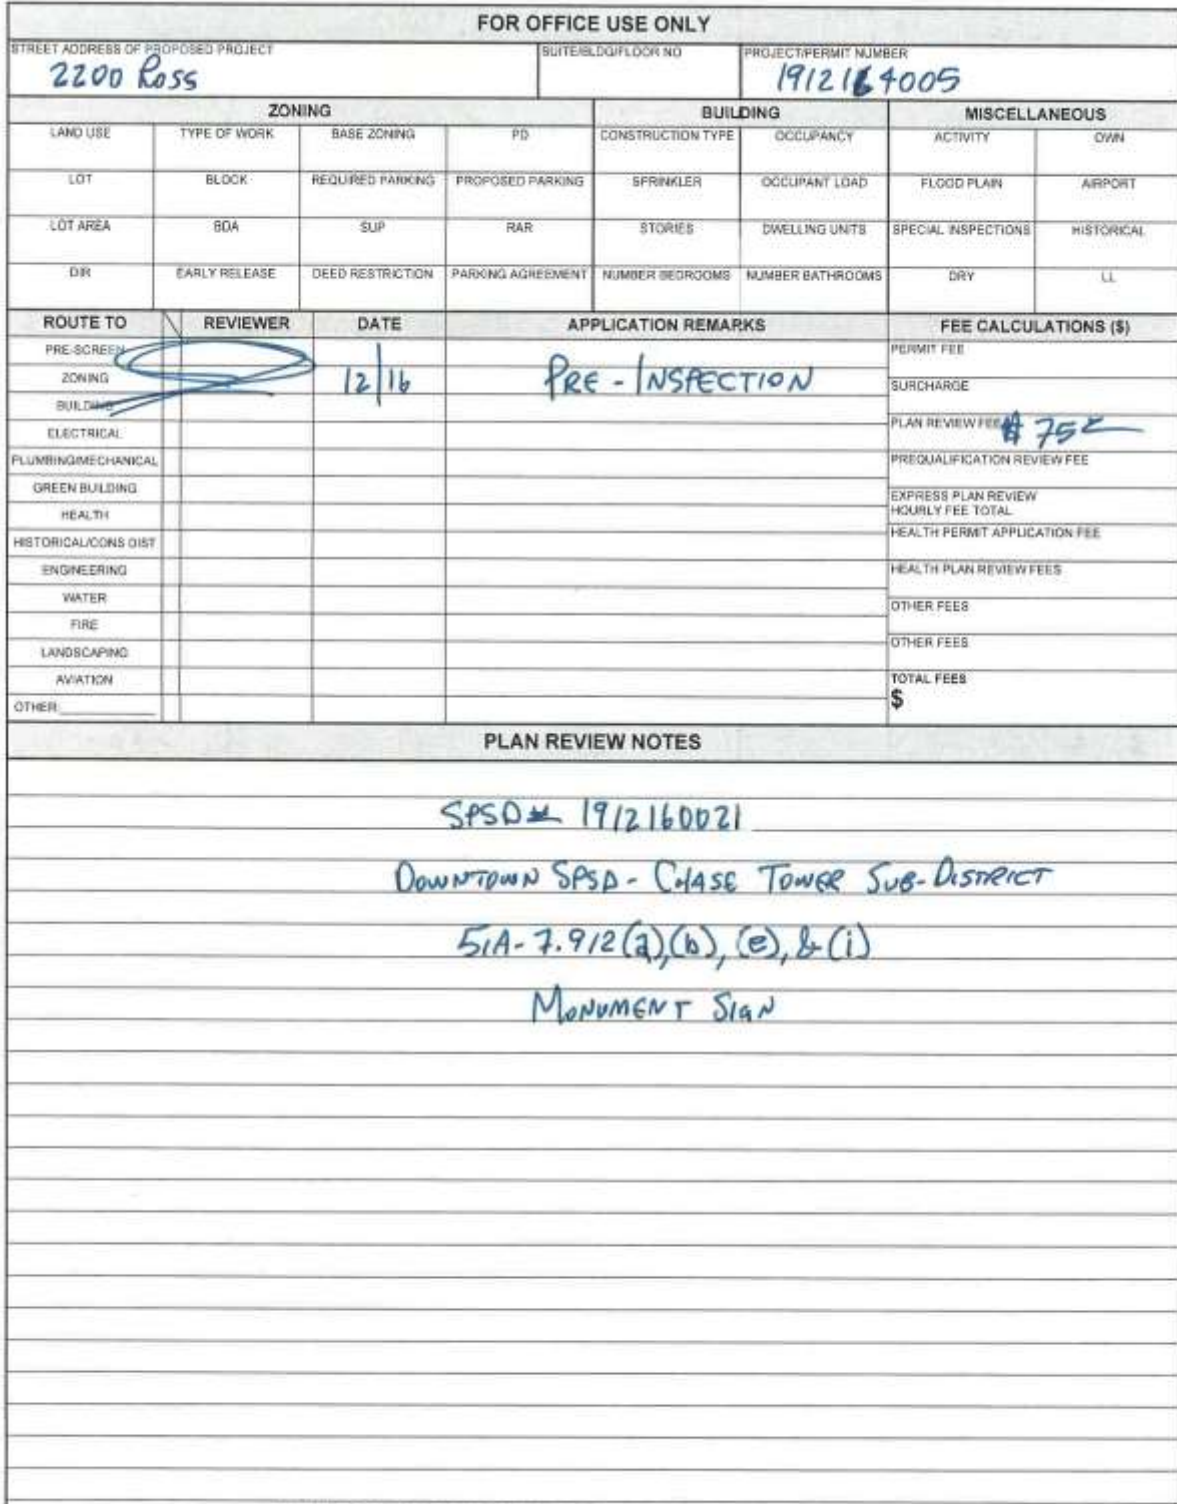 FOR OFFICE USE ONLY
STREET ADDRESS OF PROPOSED PROJECT SUITE/BLDG/FLOOR NO PROJECT/PERMIT NUMBER
2200 Ross 1912164005
ZONING BUILDING MISCELLANEOUS
LAND USE TYPE OF WORK BASE ZONING PD CONSTRUCTION TYPE OCCUPANCY ACTIVITY OWN
LOT BLOCK REQUIRED PARKING PROPOSED PARKING SPRINKLER OCCUPANT LOAD FLOOD PLAIN AIRPORT
LOT AREA BDA SUP RAR STORIES DWELLING UNITS SPECIAL INSPECTIONS HISTORICAL
DIR EARLY RELEASE DEED RESTRICTION PARKING AGREEMENT NUMBER BEDROOMS NUMBER BATHROOMS DRY LL
ROUTE TO REVIEWER DATE APPLICATION REMARKS FEE CALCULATIONS ($)
PRE-SCREEN PERMIT FEE
ZONING 12/16 PRE-INSPECTION SURCHARGE
BUILDING
ELECTRICAL PLAN REVIEW FEE $ 75
PLUMBING/MECHANICAL PREQUALIFICATION REVIEW FEE
GREEN BUILDING EXPRESS PLAN REVIEW
HEALTH HOURLY FEE TOTAL
HISTORICAL/CONS DIST HEALTH PERMIT APPLICATION FEE
ENGINEERING HEALTH PLAN REVIEW FEES
WATER OTHER FEES
FIRE
LANDSCAPING OTHER FEES
AVIATION TOTAL FEES
OTHER: $
PLAN REVIEW NOTES
SPSD# 1912160021
DOWNTOWN SPSD - CHASE TOWER SUB-DISTRICT
51A-7.912(a),(b), (e), & (i)
MONUMENT SIGN